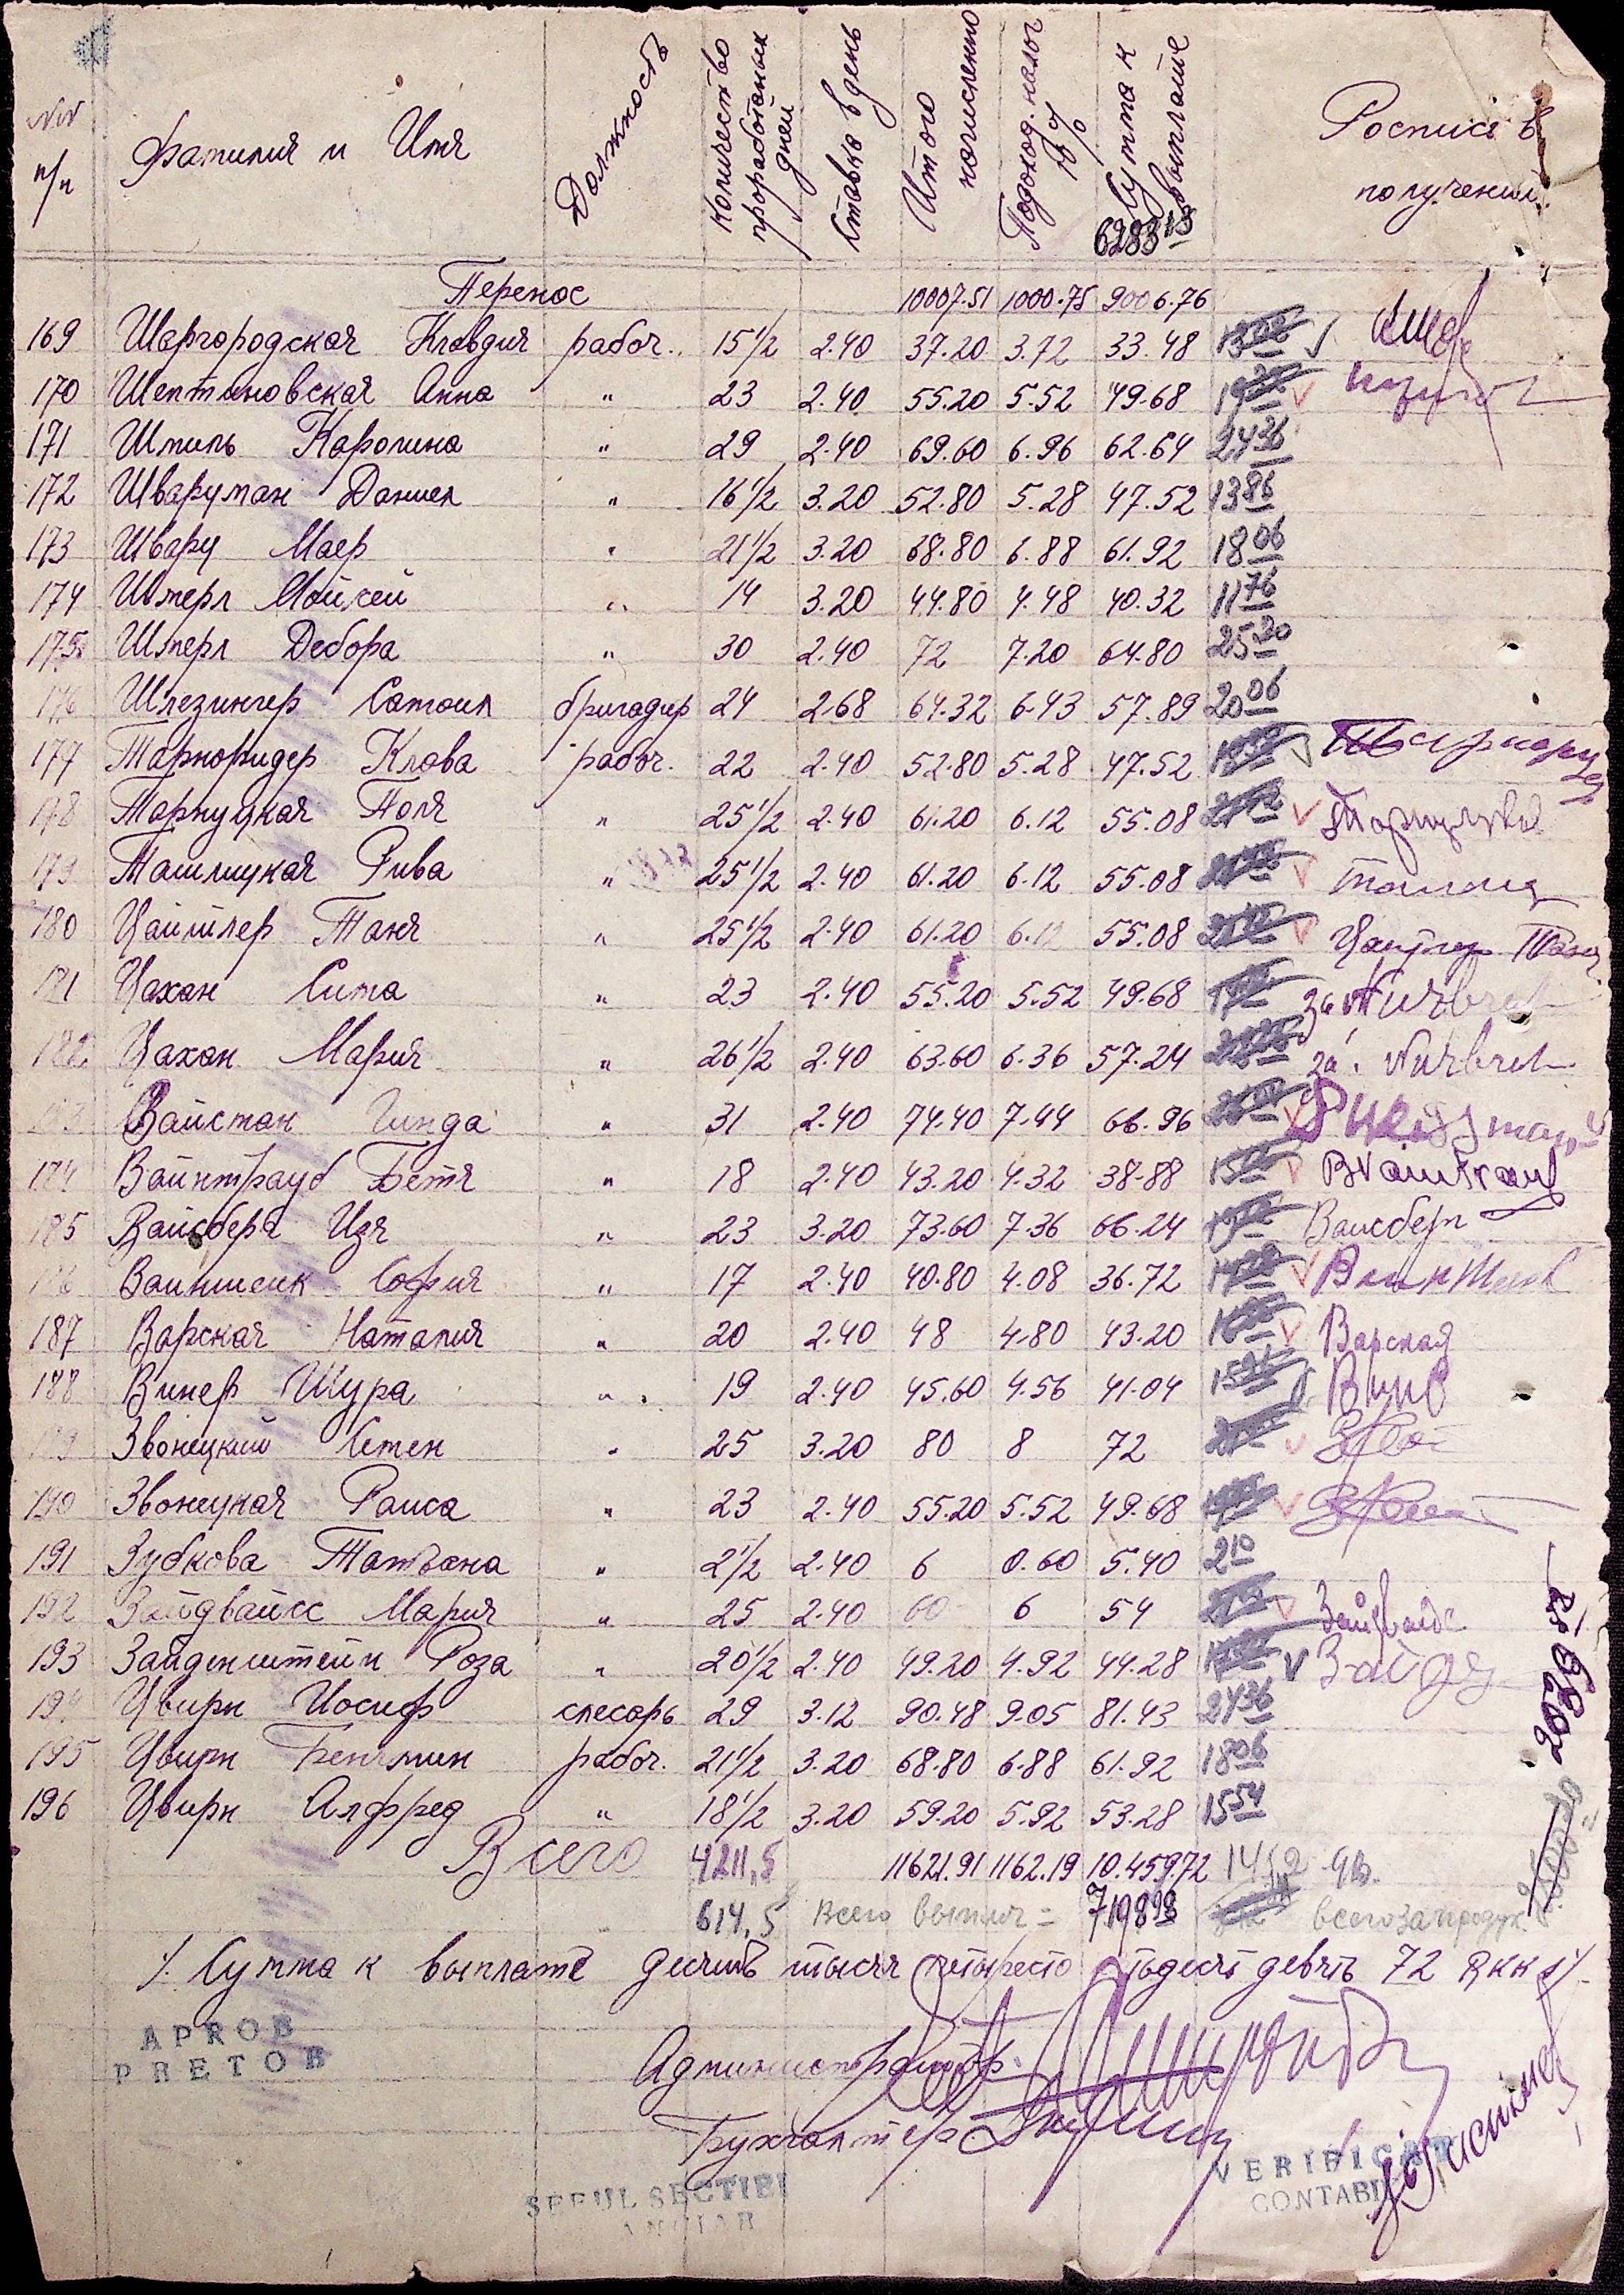 NN п/п Фамилия и Имя Должность Количество проработаных дней Ставка в день Итого начисленно Подоход. налог 10% Сумма к выплате Роспись в получении
6283 15
Перенос 10007.51 1000.75 9006.76
169 Шаргородская Клавдия рабоч. 15 1/2 2.40 37.20 3.72 33.48 13 02
170 Шептановская Анна " 23 2.40 55.20 5.52 49.68 19 32
171 Шмиль Каролина " 29 2.40 69.60 6.96 62.64 24 36
172 Шварцман Даниел " 16 1/2 3.20 52.80 5.28 47.52 13 86
173 Шварц Маер " 21 1/2 3.20 68.80 6.88 61.92 18 06
174 Шперл Мойсей " 14 3.20 44.80 4.48 40.32 11 76
175 Шперл Дебора " 30 2.40 72 7.20 64.80 25 20
176 Шлезингер Самоил бригадир 24 2.68 64.32 6.43 57.89 20 06
177 Тарноридер Клава рабоч. 22 2.40 52.80 5.28 47.52
178 Тарнуцкая Поля " 25 1/2 2.40 61.20 6.12 55.08
179 Ташлицкая Рива " 25 1/2 2.40 61.20 6.12 55.08
180 Цайтлер Таня " 25 1/2 2.40 61.20 6.12 55.08 Таня
181 Цахан Сима " 23 2.40 55.20 5.52 49.68 за
182 Цахан Мария " 26 1/2 2.40 63.60 6.36 57.24 за
183 Вайсман Гинда " 31 2.40 74.40 7.44 66.96
184 Вайнтрауб Бетя " 18 2.40 43.20 4.32 38.88
185 Вайсберг Изя " 23 3.20 73.60 7.36 66.24 Вайсберг
186 Вайншенк София " 17 2.40 40.80 4.08 36.72
187 Варская Наталия " 20 2.40 48 4.80 43.20 Варская
188 Винер Шура " 19 2.40 45.60 4.56 41.04
189 Звонецкий Семен " 25 3.20 80 8 72
190 Звонецкая Раиса " 23 2.40 55.20 5.52 49.68
191 Зубкова Татьяна " 2 1/2 2.40 6 0.60 5.40 2 10
192 Зайдвайсс Мария " 25 2.40 60 6 54
193 Зайденштейн Роза " 20 1/2 2.40 49.20 4.92 44.28
194 Цвирн Иосиф слесарь 29 3.12 90.48 9.05 81.43 24 36
195 Цвирн Бенямин рабоч. 21 1/2 3.20 68.80 6.88 61.92 18 06
196 Цвирн Алфред " 18 1/2 3.20 59.20 5.92 53.28 15 54
Всего 4211,5 11621.91 1162.19 10.459.72
614,5 всего выплач = 7198 98 всего за продук.
/. Сумма к выплате десять тысяч четыреста пятьдесят девять 72 RKK /.
APROB
PRETOR
Администратор
Бухгалтер
SEFUL SECTIEI
VERIFICAT
CONTABIL